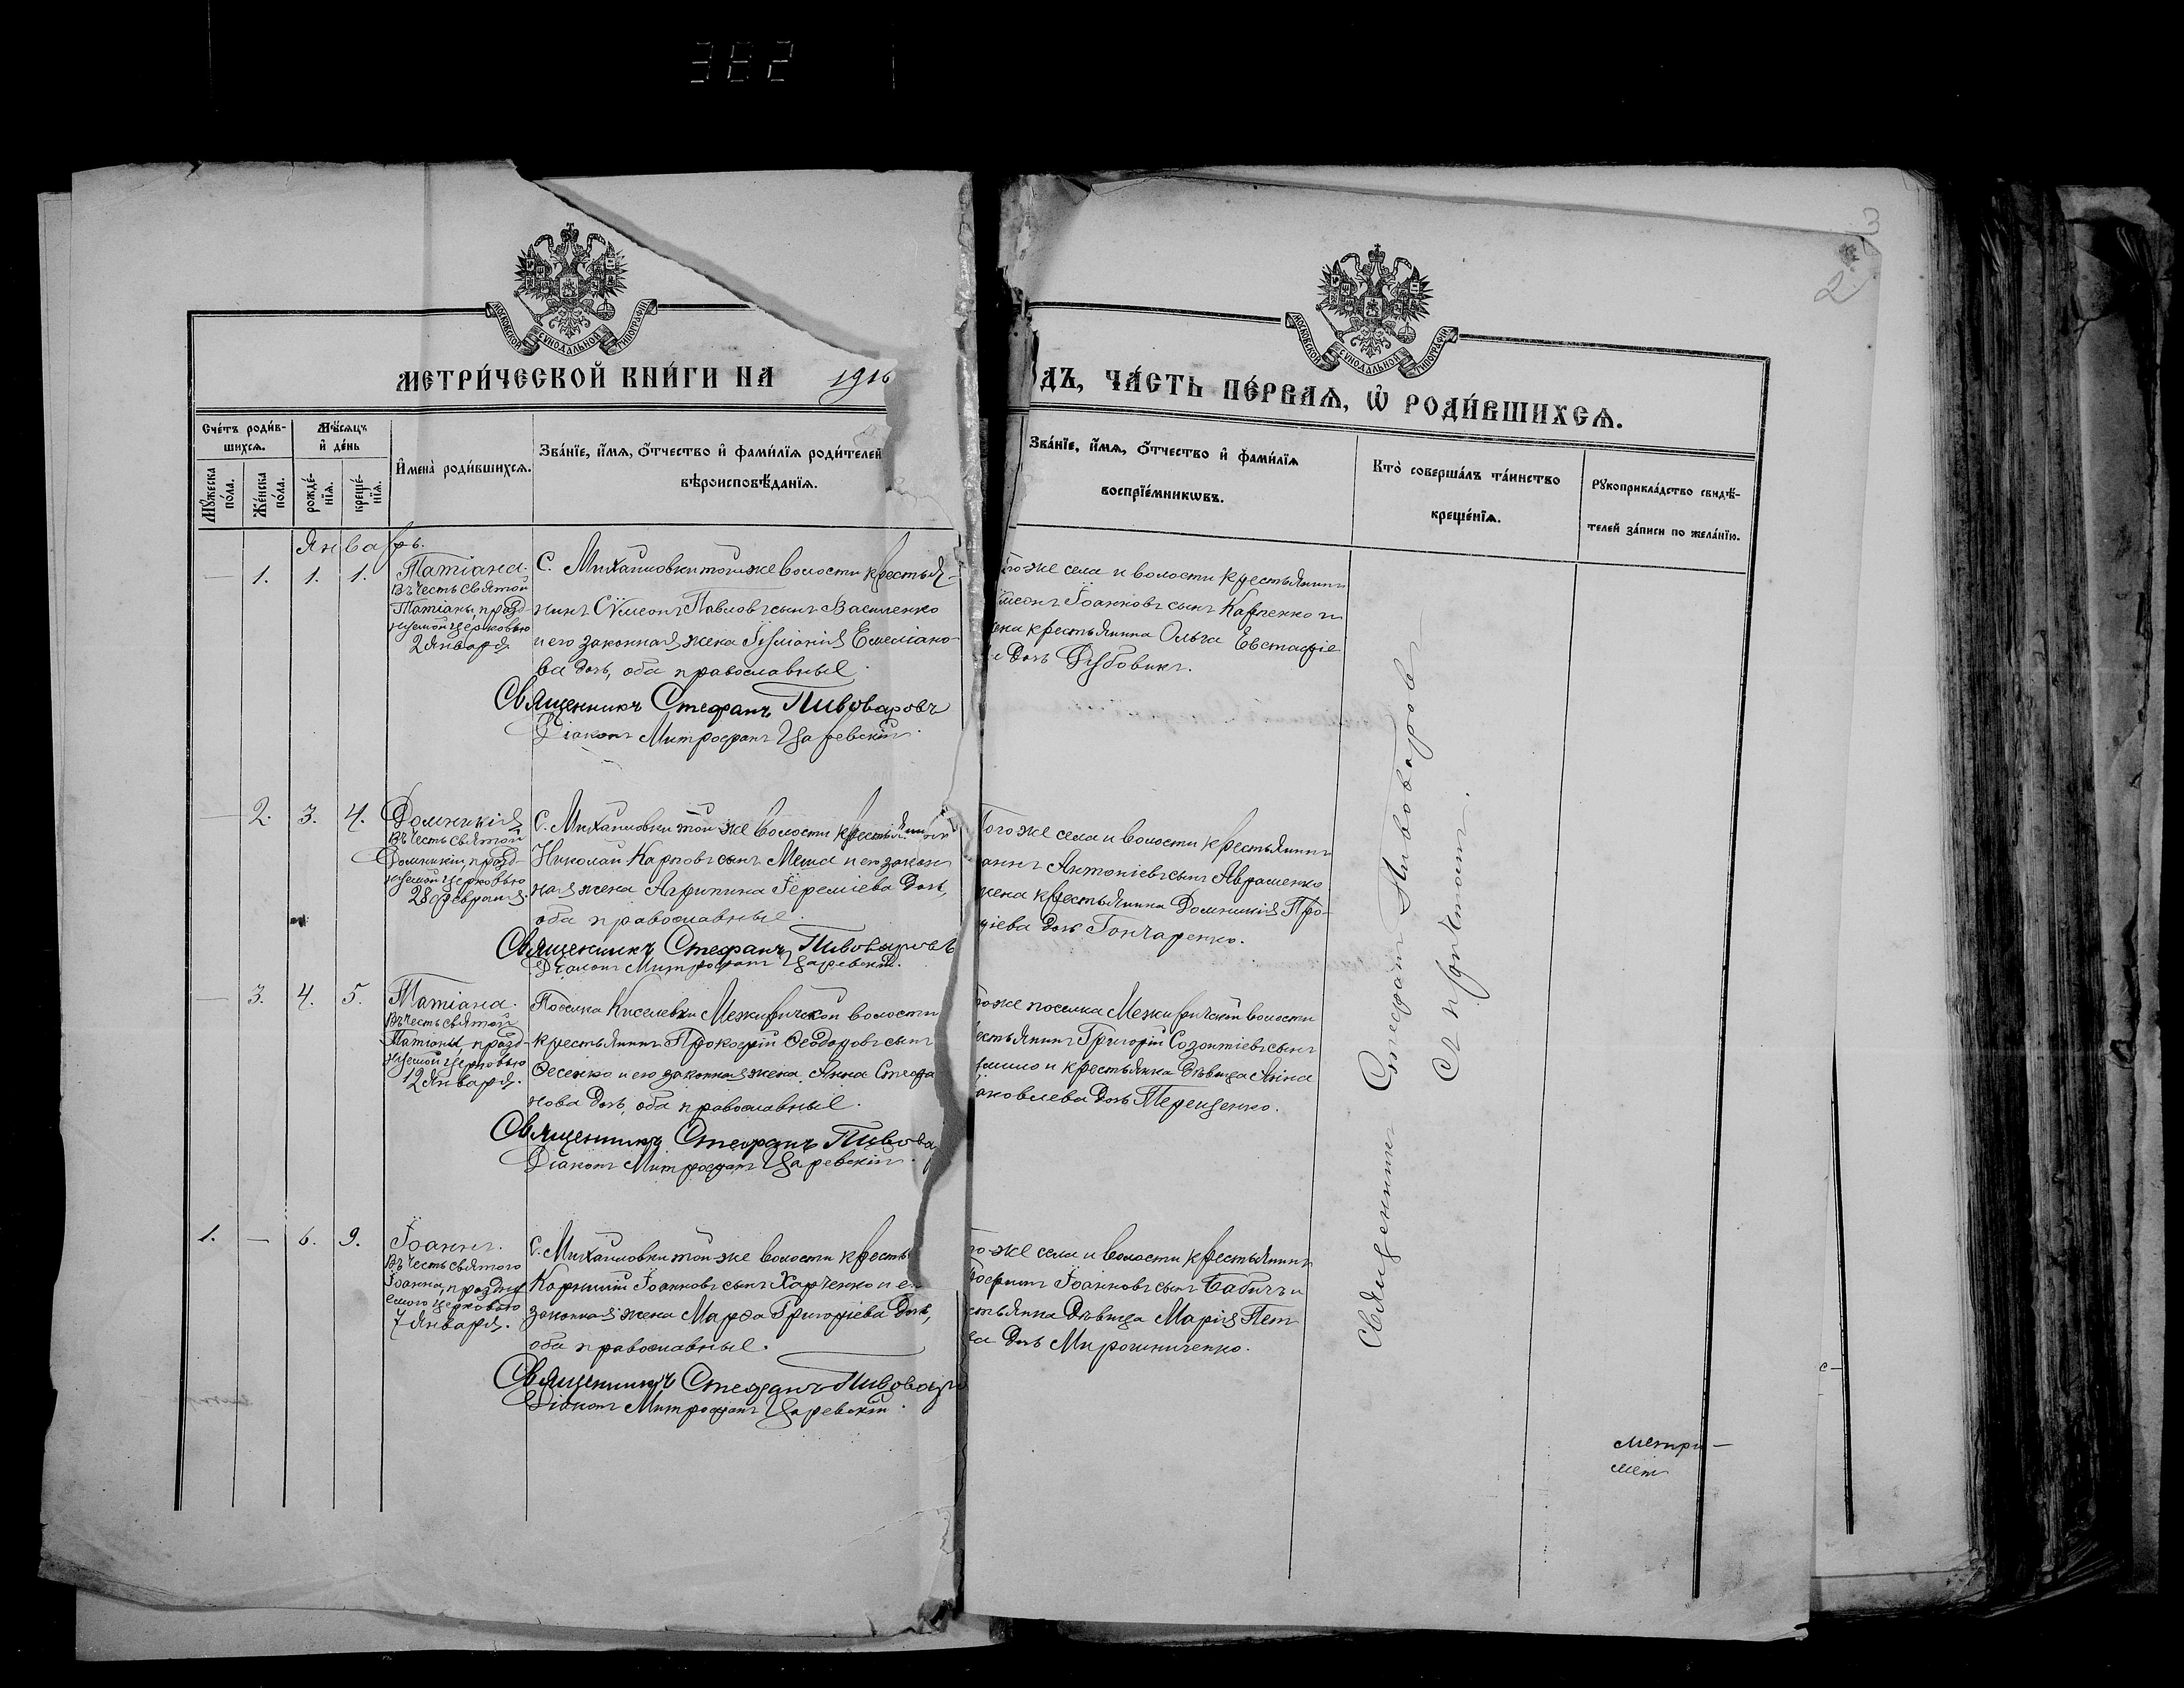 382
3
2
МОСКОВСКОЙ СѴНОДАЛЬНОЙ ТИПОГРАФІИ
МОСКОВСКОЙ СѴНОДАЛЬНОЙ ТИПОГРАФІИ
МЕТРИ́ЧЕСКОЙ КНИ́ГИ НА 1916
ДЪ, ЧА́СТЬ ПЕ́РВАѦ, Ѽ РОДИ́ВШИХСѦ.
Сче́тъ роди́в-
шихсѧ.
Мѣ́сѧцъ
и҆ де́нь
Мꙋ́жеска по́ла.
Же́нска по́ла.
рожде́-нїѧ.
креще́-нїѧ.
И҆мена̀ роди́вшихсѧ.
Зва́нїе, и҆́мѧ, ѻ҆́тчество и҆ фами́лїѧ роди́телей
вѣроисповѣ́данїѧ.
Зва́нїе, и҆́мѧ, ѻ҆́тчество и҆ фами́лїѧ
воспрїе́мникѡвъ.
Кто̀ соверша́лъ та́инство
креще́нїѧ.
Рꙋкоприкла́дство свидѣ́-
телей за́писи по жела́нїю.
Январь.
— 1. 1. 1.
Татіана.
Въ честь святой
Татіаны празд-
нуемой церковью
12 Января.
С. Михайловки той же волости крестья-
нинъ Сѵмеонъ Павловъ сынъ Василенко
и его законная жена Іуліанія Емеліано-
ва дочь, оба православные.
Священникъ Стефанъ Пивоваровъ
Діаконъ Митрофанъ Царевскій.
того же села и волости крестьянинъ
сѵмеонъ Іоанновъ сынъ Карпенко и
жена крестьянина Ольга Евстафіе
ва дочь Дубовикъ.
— 2. 3. 4.
Домникія
Въ честь святой
Домникіи празд-
нуемой церковью
28 февраля.
С. Михайловки той же волости крестьянинъ
Николай Карповъ сынъ Меша и его закон
ная жена Агрипина Іереміева дочь,
оба православные.
Священникъ Стефанъ Пивоваровъ
Діаконъ Митрофанъ Царевскій.
Того же села и волости крестьянинъ
аннъ Антоніевъ сынъ Авраменко
жена крестьянина Домникія Про-
піева дочь Гончаренко.
— 3. 4. 5.
Татіана.
Въ честь святой
Татіаны празд-
нуемой церковью
12 Января.
Поселка Киселевки Межиричской волости
крестьянинъ Прокофій Ѳеодоровъ сынъ
Фесенко и его законная жена Анна Стефа
нова дочь, оба православные.
Священникъ Стефанъ Пивова
Діаконъ Митрофанъ Царевскій.
того же поселка Межиричской волости
рестьянинъ Григорій Созонтіевъ сынъ
и крестьянка дѣвица Анна
Яковлева дочь Терещенко.
1. — 6. 9.
Іоаннъ.
Въ честь святого
Іоанна, праздну
емого церковью
7 Января.
С. Михайловки той-же волости кресть
Корнилій Іоанновъ сынъ Харченко и е
законная жена Марѳа Григоріева дочь,
оба православные.
Священникъ Стефанъ Пивовар
Діаконъ Митрофанъ Царевскій.
го-же села и волости крестьянинъ
Іоанновъ сынъ Бабичъ и
стьянка дѣвица Марія Пет
ва дочь Мирошниченко.
Священникъ Стефанъ Пивоваровъ
Съ причтомъ.
Метри—
Мет
с—